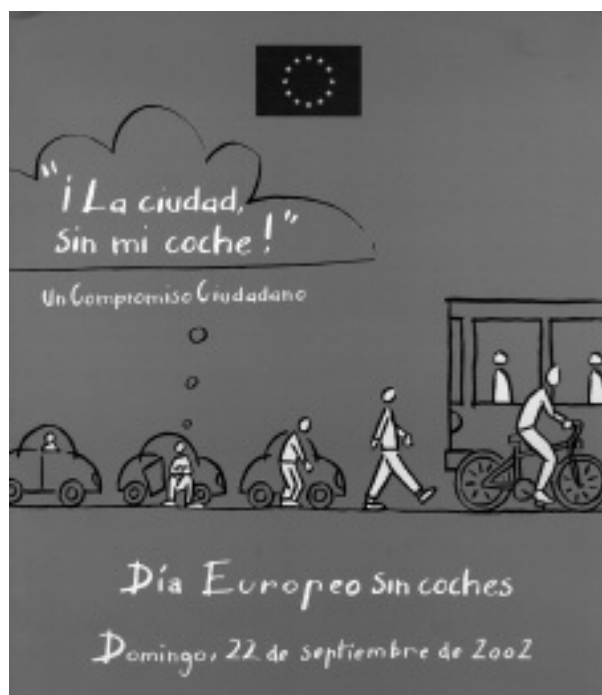 "¡La ciudad,
sin mi coche!"
Un Compromiso Ciudadano
Día Europeo sin coches
Domingo, 22 de septiembre de 2002